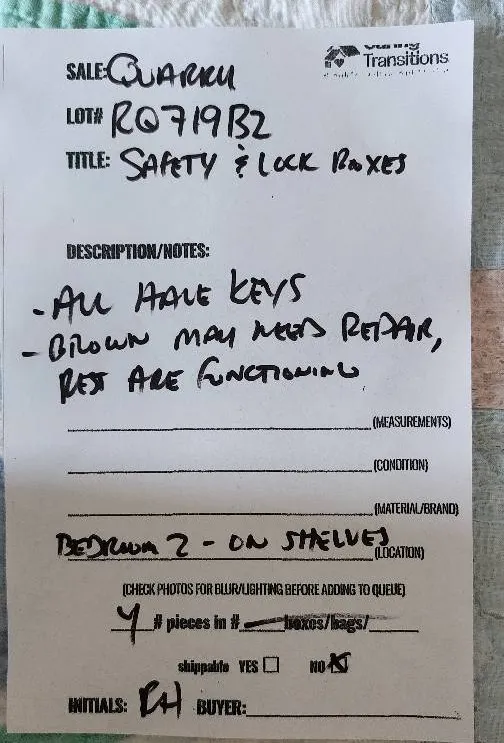 Caring
Transitions
SALE: QUARRY
LOT# RQ719B2
TITLE: SAFETY & LOCK BOXES
DESCRIPTION/NOTES:
- ALL HAVE KEYS
- BROWN MAY NEED REPAIR,
REST ARE FUNCTIONING
(MEASUREMENTS)
(CONDITION)
(MATERIAL/BRAND)
BEDROOM 2 - ON SHELVES (LOCATION)
(CHECK PHOTOS FOR BLUR/LIGHTING BEFORE ADDING TO QUEUE)
4 # pieces in # boxes/bags/
shippable YES ☐ NO ☒
INITIALS: RH BUYER: